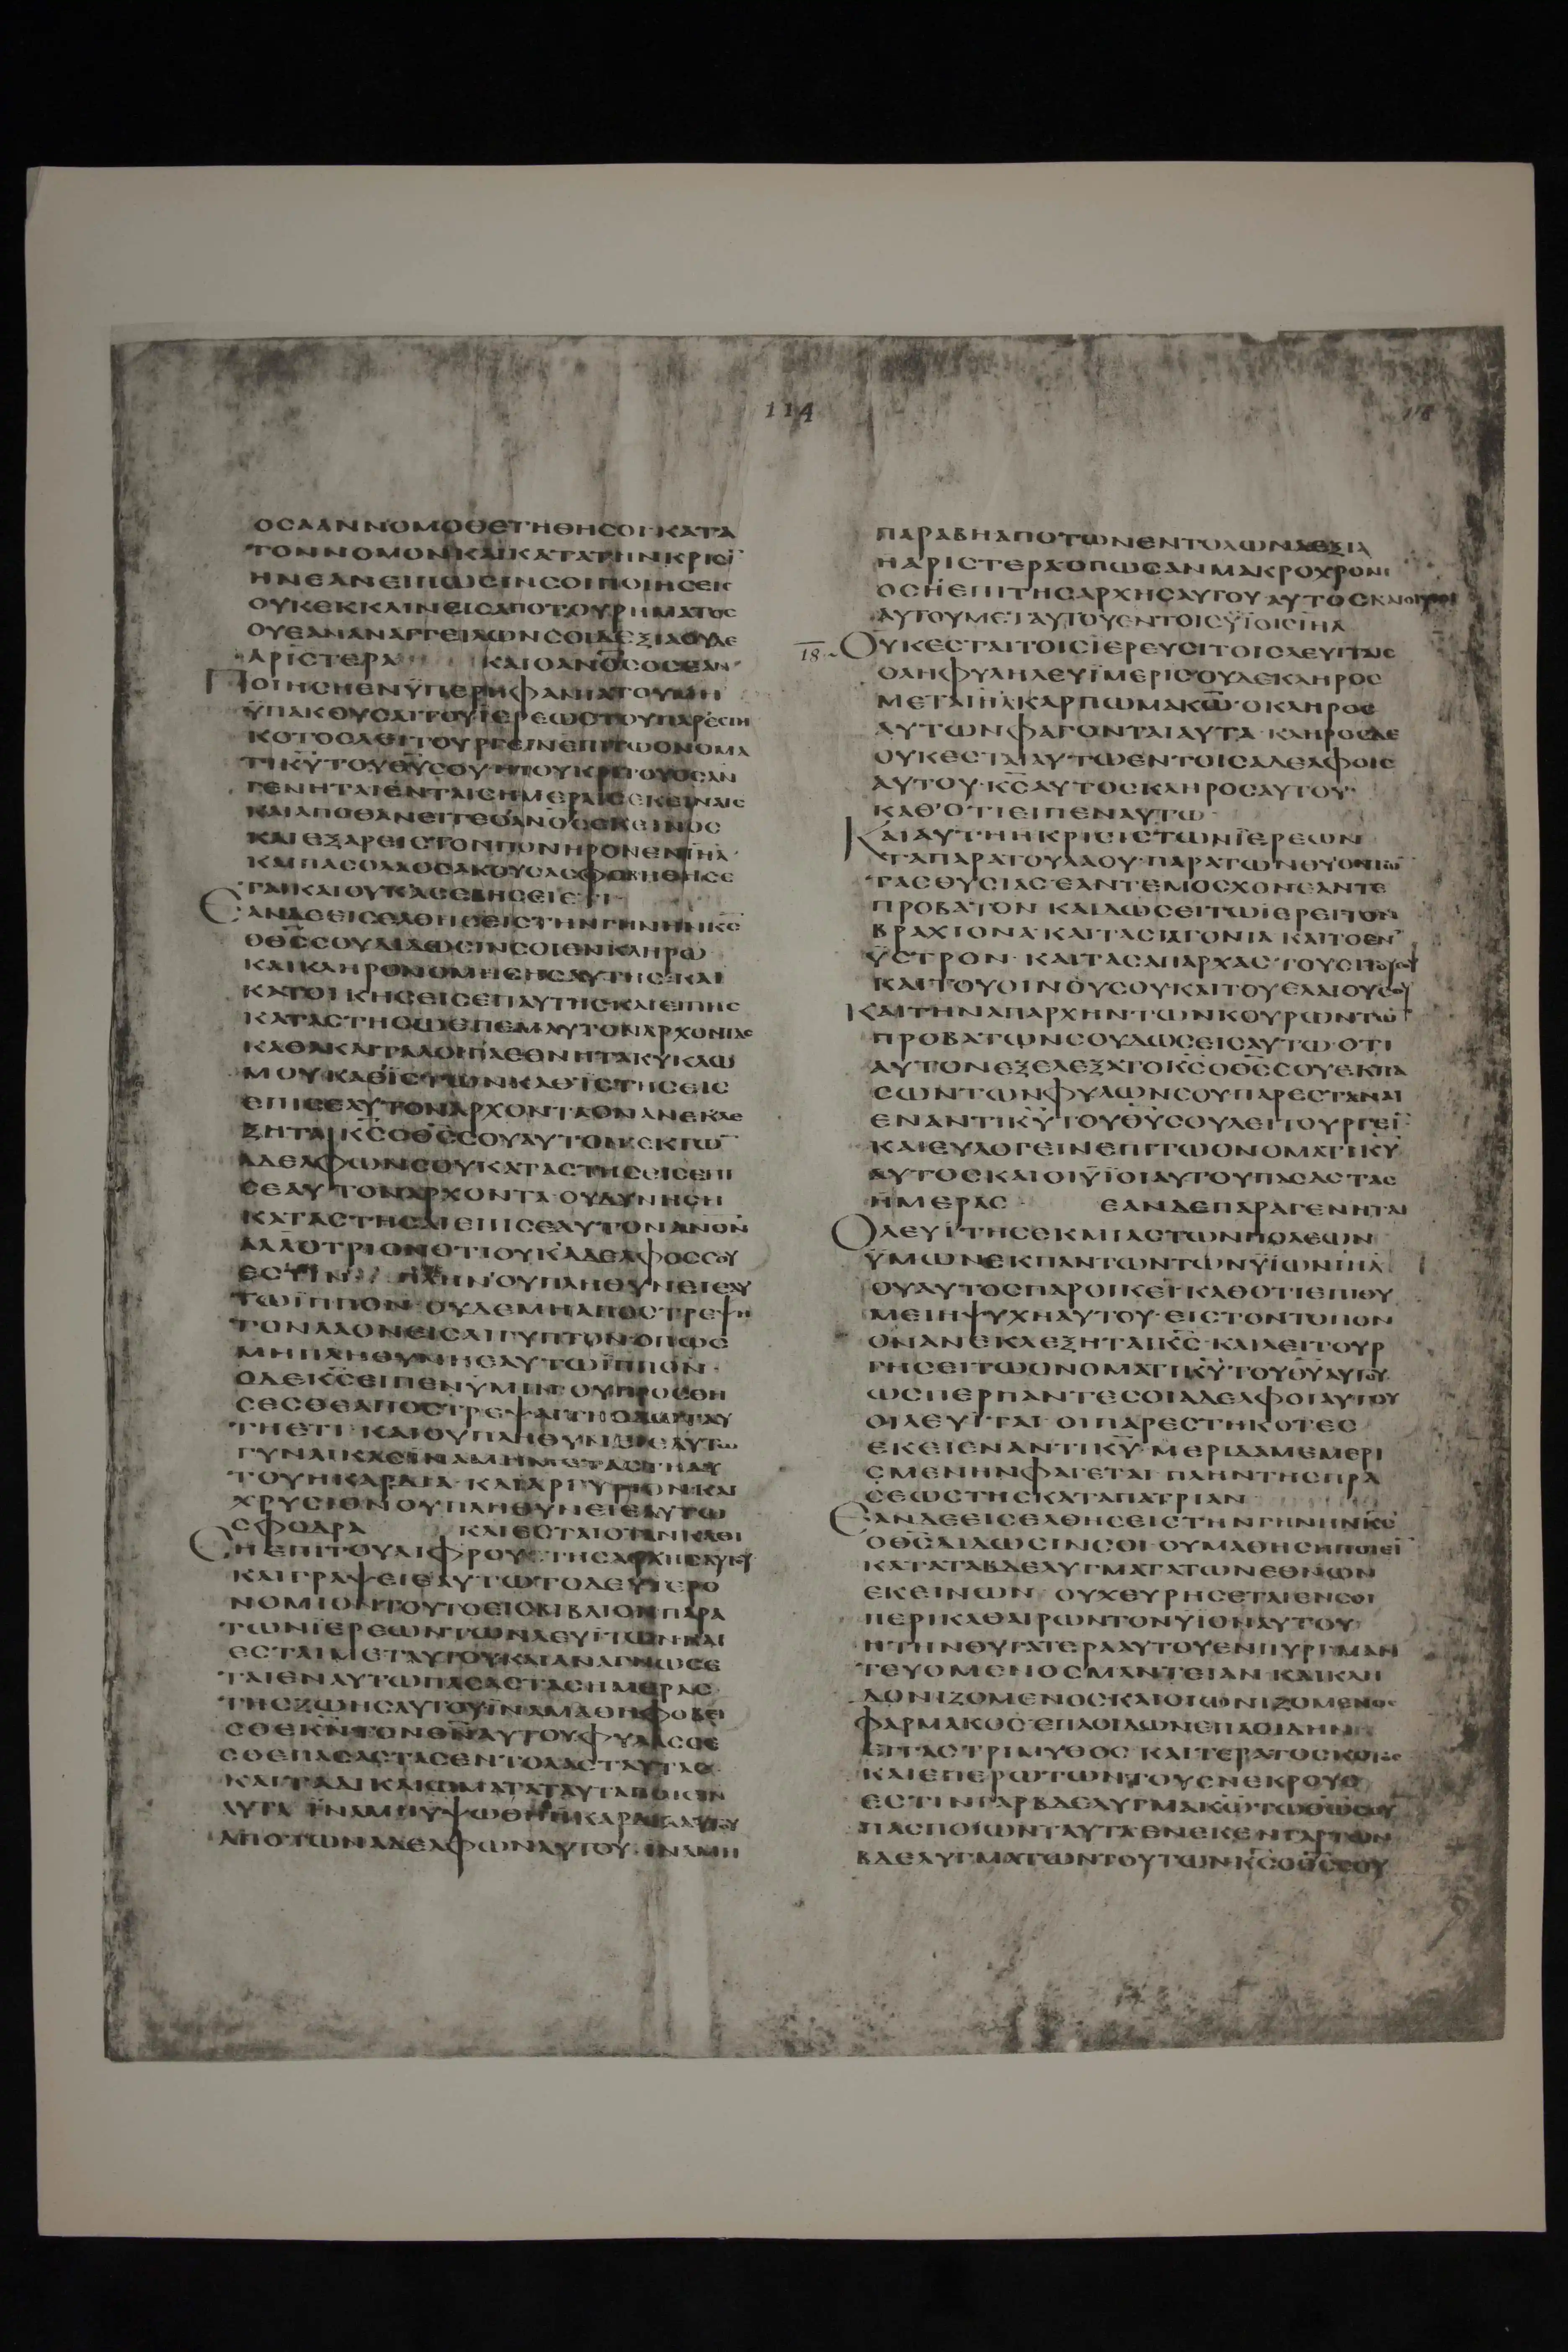 114
ΟϹΑΑΝΝΟΜΟΘΕΤΗΘΗϹΟΙ·ΚΑΤΑ
ΤΟΝΝΟΜΟΝΚΑΙΚΑΤΑΤΗΝΚΡΙϹΙ̅
ΗΝΕΑΝΕΙΠΩϹΙΝϹΟΙΠΟΙΗϹΕΙϹ
ΟΥΚΕΚΚΛΙΝΕΙϹΑΠΟΤΟΥΡΗΜΑΤΟϹ
ΟΥΕΑΝΑΝΑΓΓΕΙΛΩΝϹΟΙΔΕΞΙΑΟΥΔΕ
ΑΡΙϹΤΕΡΑ ΚΑΙΟΑΝΟ̅ϹΟϹΕΑΝ
ΠΟΙΗϹΗΕΝΫΠΕΡΗΦΑΝΙΑΤΟΥΜΗ
ΫΠΑΚΟΥϹΑΙΤΟΥΪΕΡΕΩϹΤΟΥΠΑΡΕϹΤΗ
ΚΟΤΟϹΛΕΙΤΟΥΡΓΕΙΝΕΠΙΤΩΟΝΟΜΑ
ΤΙΚ̅Υ̅ΤΟΥΘ̅Υ̅ϹΟΥΗΤΟΥΚΡΙΤΟΥΟϹΑΝ
ΓΕΝΗΤΑΙΕΝΤΑΙϹΗΜΕΡΑΙϹΕΚΕΙΝΑΙϹ
ΚΑΙΑΠΟΘΑΝΕΙΤΕΟΑΝΟ̅ϹΕΚΕΙΝΟϹ
ΚΑΙΕΞΑΡΕΙϹΤΟΝΠΟΝΗΡΟΝΕΝΙΗ̅Λ
ΚΑΙΠΑϹΟΛΑΟϹΑΚΟΥϹΑϹΦΟΒΗΘΗϹΕ
ΤΑΙΚΑΙΟΥΚΑϹΕΒΗϹΕΙΕΤΙ
ΕΑΝΔΕΕΙϹΕΛΘΗϹΕΙϹΤΗΝΓΗΝΗΝΚ̅Ϲ̅
ΟΘ̅Ϲ̅ϹΟΥΔΙΔΩϹΙΝϹΟΙΕΝΚΛΗΡΩ
ΚΑΙΚΛΗΡΟΝΟΜΗϹΗϹΑΥΤΗϹ·ΚΑΙ
ΚΑΤΟΙΚΗϹΕΙϹΕΠΑΥΤΗϹΚΑΙΕΙΠΗϹ
ΚΑΤΑϹΤΗϹΩΕΠΕΜΑΥΤΟΝΑΡΧΟΝΤΑ
ΚΑΘΑΚΑΙΤΑΛΟΙΠΑΕΘΝΗΤΑΚΥΚΛΩ
ΜΟΥΚΑΘΙϹΤΩΝΚΑΘΙϹΤΗϹΕΙϹ
ΕΠΙϹΕΑΥΤΟΝΑΡΧΟΝΤΑΟΝΑΝΕΚΛΕ
ΞΗΤΑΙΚ̅Ϲ̅ΟΘ̅Ϲ̅ϹΟΥΑΥΤΟΝΕΚΤΩ̅
ΑΔΕΛΦΩΝϹΟΥΚΑΤΑϹΤΗϹΕΙϹΕΠΙ
ϹΕΑΥΤΟΝΑΡΧΟΝΤΑ·ΟΥΔΥΝΗϹΗ
ΚΑΤΑϹΤΗϹΑΙΕΠΙϹΕΑΥΤΟΝΑΝΟ̅Ν
ΑΛΛΟΤΡΙΟΝΟΤΙΟΥΚΑΔΕΛΦΟϹϹΟΥ
ΕϹΤΙΝ ΠΛΗΝΟΥΠΛΗΘΥΝΕΙΕΑΥ
ΤΩΪΠΠΟΝ·ΟΥΔΕΜΗΑΠΟϹΤΡΕΨΗ
ΤΟΝΛΑΟΝΕΙϹΑΙΓΥΠΤΟΝΟΠΩϹ
ΜΗΠΛΗΘΥΝΗϹΑΥΤΩΪΠΠΟΝ·
ΟΔΕΚ̅Ϲ̅ΕΙΠΕΝΫΜΙΝΟΥΠΡΟϹΘΗ
ϹΕϹΘΕΑΠΟϹΤΡΕΨΑΙΤΗΟΔΩΤΑΥ
ΤΗΕΤΙ·ΚΑΙΟΥΠΛΗΘΥΝΕΙΕΑΥΤΩ
ΓΥΝΑΙΚΑϹΪΝΑΜΗΜΕΤΑϹΤΗΑΥ
ΤΟΥΗΚΑΡΔΙΑ·ΚΑΙΑΡΓΥΡΙΟΝΚΑΙ
ΧΡΥϹΙΟΝΟΥΠΛΗΘΥΝΕΙΕΑΥΤΩ
ϹΦΟΔΡΑ ΚΑΙΕϹΤΑΙΟΤΑΝΚΑΘΙ
ϹΗΕΠΙΤΟΥΔΙΦΡΟΥΤΗϹΑΡΧΗϹΑΥΤΟΥ
ΚΑΙΓΡΑΨΕΙΕΑΥΤΩΤΟΔΕΥΤΕΡΟ
ΝΟΜΙΟΝΤΟΥΤΟΕΙϹΒΙΒΛΙΟΝΠΑΡΑ
ΤΩΝΪΕΡΕΩΝΤΩΝΛΕΥΙΤΩΝΚΑΙ
ΕϹΤΑΙΜΕΤΑΥΤΟΥΚΑΙΑΝΑΓΝΩϹΕ
ΤΑΙΕΝΑΥΤΩΠΑϹΑϹΤΑϹΗΜΕΡΑϹ
ΤΗϹΖΩΗϹΑΥΤΟΥΪΝΑΜΑΘΗΦΟΒΕΙ
ϹΘΕΚ̅Ν̅ΤΟΝΘ̅Ν̅ΑΥΤΟΥΦΥΛΑϹϹΕ
ϹΘΕΠΑϹΑϹΤΑϹΕΝΤΟΛΑϹΤΑΥΤΑϹ
ΚΑΙΤΑΔΙΚΑΙΩΜΑΤΑΤΑΥΤΑΠΟΙΕΙΝ
ΑΥΤΑ ΪΝΑΜΗΥΨΩΘΗΗΚΑΡΔΙΑΑΥΤΟΥ
ΑΠΟΤΩΝΑΔΕΛΦΩΝΑΥΤΟΥ·ΪΝΑΜΗ
ΠΑΡΑΒΗΑΠΟΤΩΝΕΝΤΟΛΩΝΔΕΞΙΑ
ΗΑΡΙϹΤΕΡΑΟΠΩϹΑΝΜΑΚΡΟΧΡΟΝΙ
ΟϹΗΕΠΙΤΗϹΑΡΧΗϹΑΥΤΟΥΑΥΤΟϹΚΑΙΟΙΥΙΟΙ
ΑΥΤΟΥΜΕΤΑΥΤΟΥΕΝΤΟΙϹΫΙΟΙϹΙΗ̅Λ
18 ΟΥΚΕϹΤΑΙΤΟΙϹΪΕΡΕΥϹΙΤΟΙϹΛΕΥΙΤΑΙϹ
ΟΛΗΦΥΛΗΛΕΥΪΜΕΡΙϹΟΥΔΕΚΛΗΡΟϹ
ΜΕΤΑΙΗ̅Λ·ΚΑΡΠΩΜΑΚ̅Ω̅·ΟΚΛΗΡΟϹ
ΑΥΤΩΝΦΑΓΟΝΤΑΙΑΥΤΑ·ΚΛΗΡΟϹΔΕ
ΟΥΚΕϹΤΑΙΑΥΤΩΕΝΤΟΙϹΑΔΕΛΦΟΙϹ
ΑΥΤΟΥ·Κ̅Ϲ̅ΑΥΤΟϹΚΛΗΡΟϹΑΥΤΟΥ·
ΚΑΘ'ΟΤΙΕΙΠΕΝΑΥΤΩ
ΚΑΙΑΥΤΗΗΚΡΙϹΙϹΤΩΝΪΕΡΕΩΝ
ΤΑΠΑΡΑΤΟΥΛΑΟΥ·ΠΑΡΑΤΩΝΘΥΟΝΤΩ̅
ΤΑϹΘΥϹΙΑϹ·ΕΑΝΤΕΜΟϹΧΟΝΕΑΝΤΕ
ΠΡΟΒΑΤΟΝ ΚΑΙΔΩϹΕΙΤΩΪΕΡΕΙΤΟΝ
ΒΡΑΧΙΟΝΑ·ΚΑΙΤΑϹΙΑΓΟΝΙΑ ΚΑΙΤΟΕΝ
ΫϹΤΡΟΝ· ΚΑΙΤΑϹΑΠΑΡΧΑϹ·ΤΟΥϹΙΤΟΥϹΟΥ
ΚΑΙΤΟΥΟΙΝΟΥϹΟΥΚΑΙΤΟΥΕΛΑΙΟΥϹΟΥ
ΚΑΙΤΗΝΑΠΑΡΧΗΝ·ΤΩΝΚΟΥΡΩΝΤΩ̅
ΠΡΟΒΑΤΩΝϹΟΥΔΩϹΕΙϹΑΥΤΩ·ΟΤΙ
ΑΥΤΟΝΕΞΕΛΕΞΑΤΟΚ̅Ϲ̅ΟΘ̅Ϲ̅ϹΟΥΕΚΠΑ
ϹΩΝΤΩΝΦΥΛΩΝϹΟΥΠΑΡΕϹΤΑΝΑΙ
ΕΝΑΝΤΙΚ̅Υ̅ΤΟΥΘ̅Υ̅ϹΟΥΛΕΙΤΟΥΡΓΕΙ̅
ΚΑΙΕΥΛΟΓΕΙΝΕΠΙΤΩΟΝΟΜΑΤΙΚ̅Υ̅
ΑΥΤΟϹΚΑΙΟΙΫΙΟΙΑΥΤΟΥΠΑϹΑϹΤΑϹ
ΗΜΕΡΑϹ ΕΑΝΔΕΠΑΡΑΓΕΝΗΤΑΙ
ΟΛΕΥΪΤΗϹΕΚΜΙΑϹΤΩΝΠΟΛΕΩΝ
ΫΜΩΝΕΚΠΑΝΤΩΝΤΩΝΫΙΩΝΙΗ̅Λ
ΟΥΑΥΤΟϹΠΑΡΟΙΚΕΙ·ΚΑΘΟΤΙΕΠΙΘΥ
ΜΕΙΗΨΥΧΗΑΥΤΟΥ·ΕΙϹΤΟΝΤΟΠΟΝ
ΟΝΑΝΕΚΛΕΞΗΤΑΙΚ̅Ϲ̅·ΚΑΙΛΕΙΤΟΥΡ
ΓΗϹΕΙΤΩΟΝΟΜΑΤΙΚ̅Υ̅ΤΟΥΘ̅Υ̅ΑΥΤΟΥ
ΩϹΠΕΡΠΑΝΤΕϹΟΙΑΔΕΛΦΟΙΑΥΤΟΥ
ΟΙΛΕΥΙΤΑΙ·ΟΙΠΑΡΕϹΤΗΚΟΤΕϹ
ΕΚΕΙΕΝΑΝΤΙΚ̅Υ̅·ΜΕΡΙΔΑΜΕΜΕΡΙ
ϹΜΕΝΗΝΦΑΓΕΤΑΙ·ΠΛΗΝΤΗϹΠΡΑ
ϹΕΩϹΤΗϹΚΑΤΑΠΑΤΡΙΑΝ
ΕΑΝΔΕΕΙϹΕΛΘΗϹΕΙϹΤΗΝΓΗΝΗΝΚ̅Ϲ̅
ΟΘ̅Ϲ̅ΔΙΔΩϹΙΝϹΟΙ·ΟΥΜΑΘΗϹΗΠΟΙΕΙ̅
ΚΑΤΑΤΑΒΔΕΛΥΓΜΑΤΑΤΩΝΕΘΝΩΝ
ΕΚΕΙΝΩΝ ΟΥΧΕΥΡΗϹΕΤΑΙΕΝϹΟΙ
ΠΕΡΙΚΑΘΑΙΡΩΝΤΟΝΥΙΟΝΑΥΤΟΥ
ΗΤΗΝΘΥΓΑΤΕΡΑΑΥΤΟΥΕΝΠΥΡΙ·ΜΑΝ
ΤΕΥΟΜΕΝΟϹΜΑΝΤΕΙΑΝ·ΚΑΙΚΛΗ
ΔΟΝΙΖΟΜΕΝΟϹΚΑΙΟΙΩΝΙΖΟΜΕΝΟϹ
ΦΑΡΜΑΚΟϹ·ΕΠΑΟΙΔΩΝΕΠΑΟΙΔΗΝ
ΕΓΓΑϹΤΡΙΜΥΘΟϹ ΚΑΙΤΕΡΑΤΟϹΚΟΠΟϹ
ΚΑΙΕΠΕΡΩΤΩΝΤΟΥϹΝΕΚΡΟΥϹ
ΕϹΤΙΝΓΑΡΒΔΕΛΥΓΜΑΚ̅Ω̅ΤΩΘ̅Ω̅ϹΟΥ
ΠΑϹΠΟΙΩΝΤΑΥΤΑΕΝΕΚΕΝΓΑΡΤΩΝ
ΒΔΕΛΥΓΜΑΤΩΝΤΟΥΤΩΝΚ̅Ϲ̅ΟΘ̅Ϲ̅ϹΟΥ